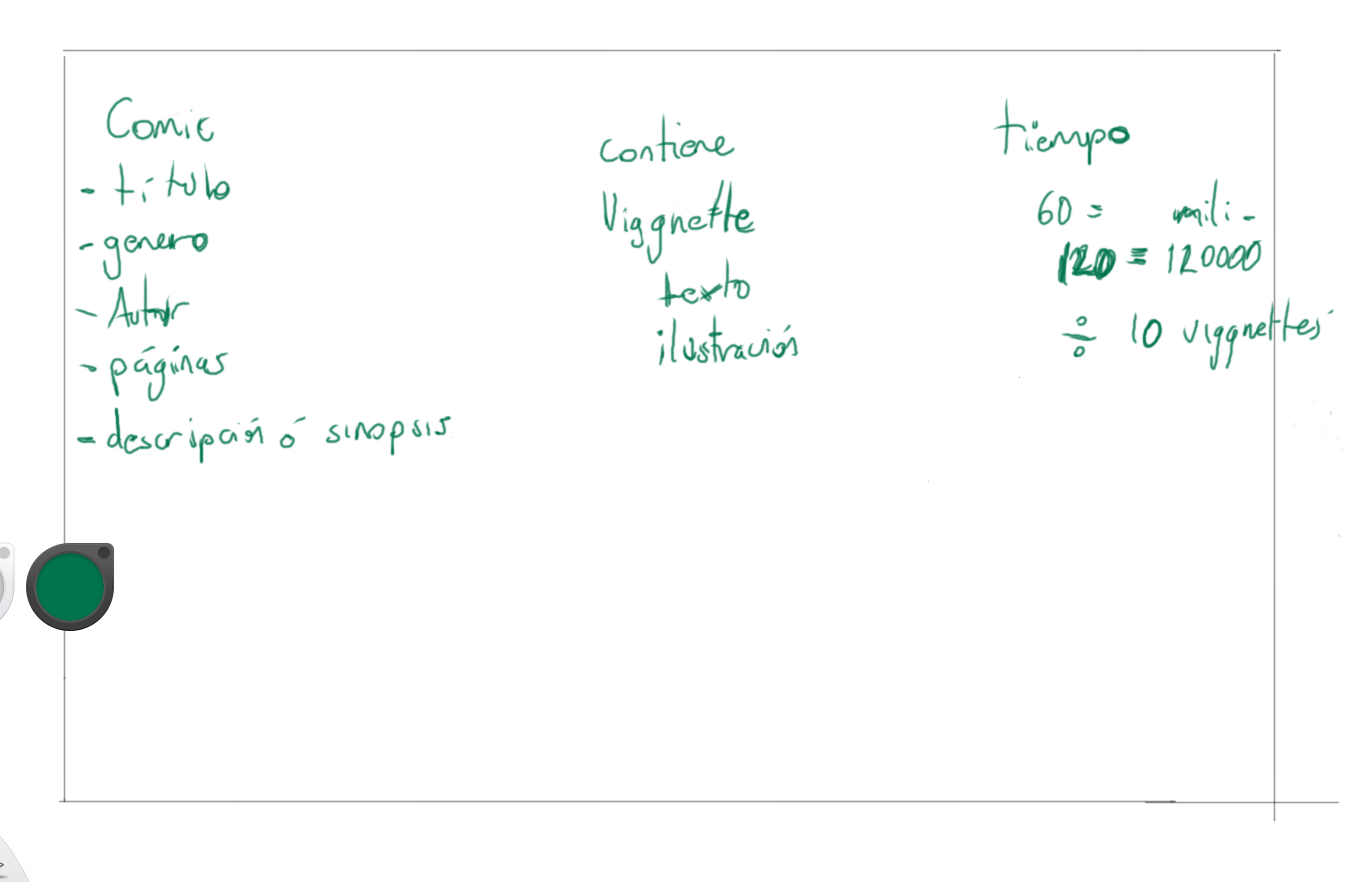 Comic
- título
- genero
- Autor
- páginas
- descripción ó sinopsis
contiene
Viggnette
texto
ilustración
tiempo
60 = mili -
120 = 120000
÷ 10 viggnettes